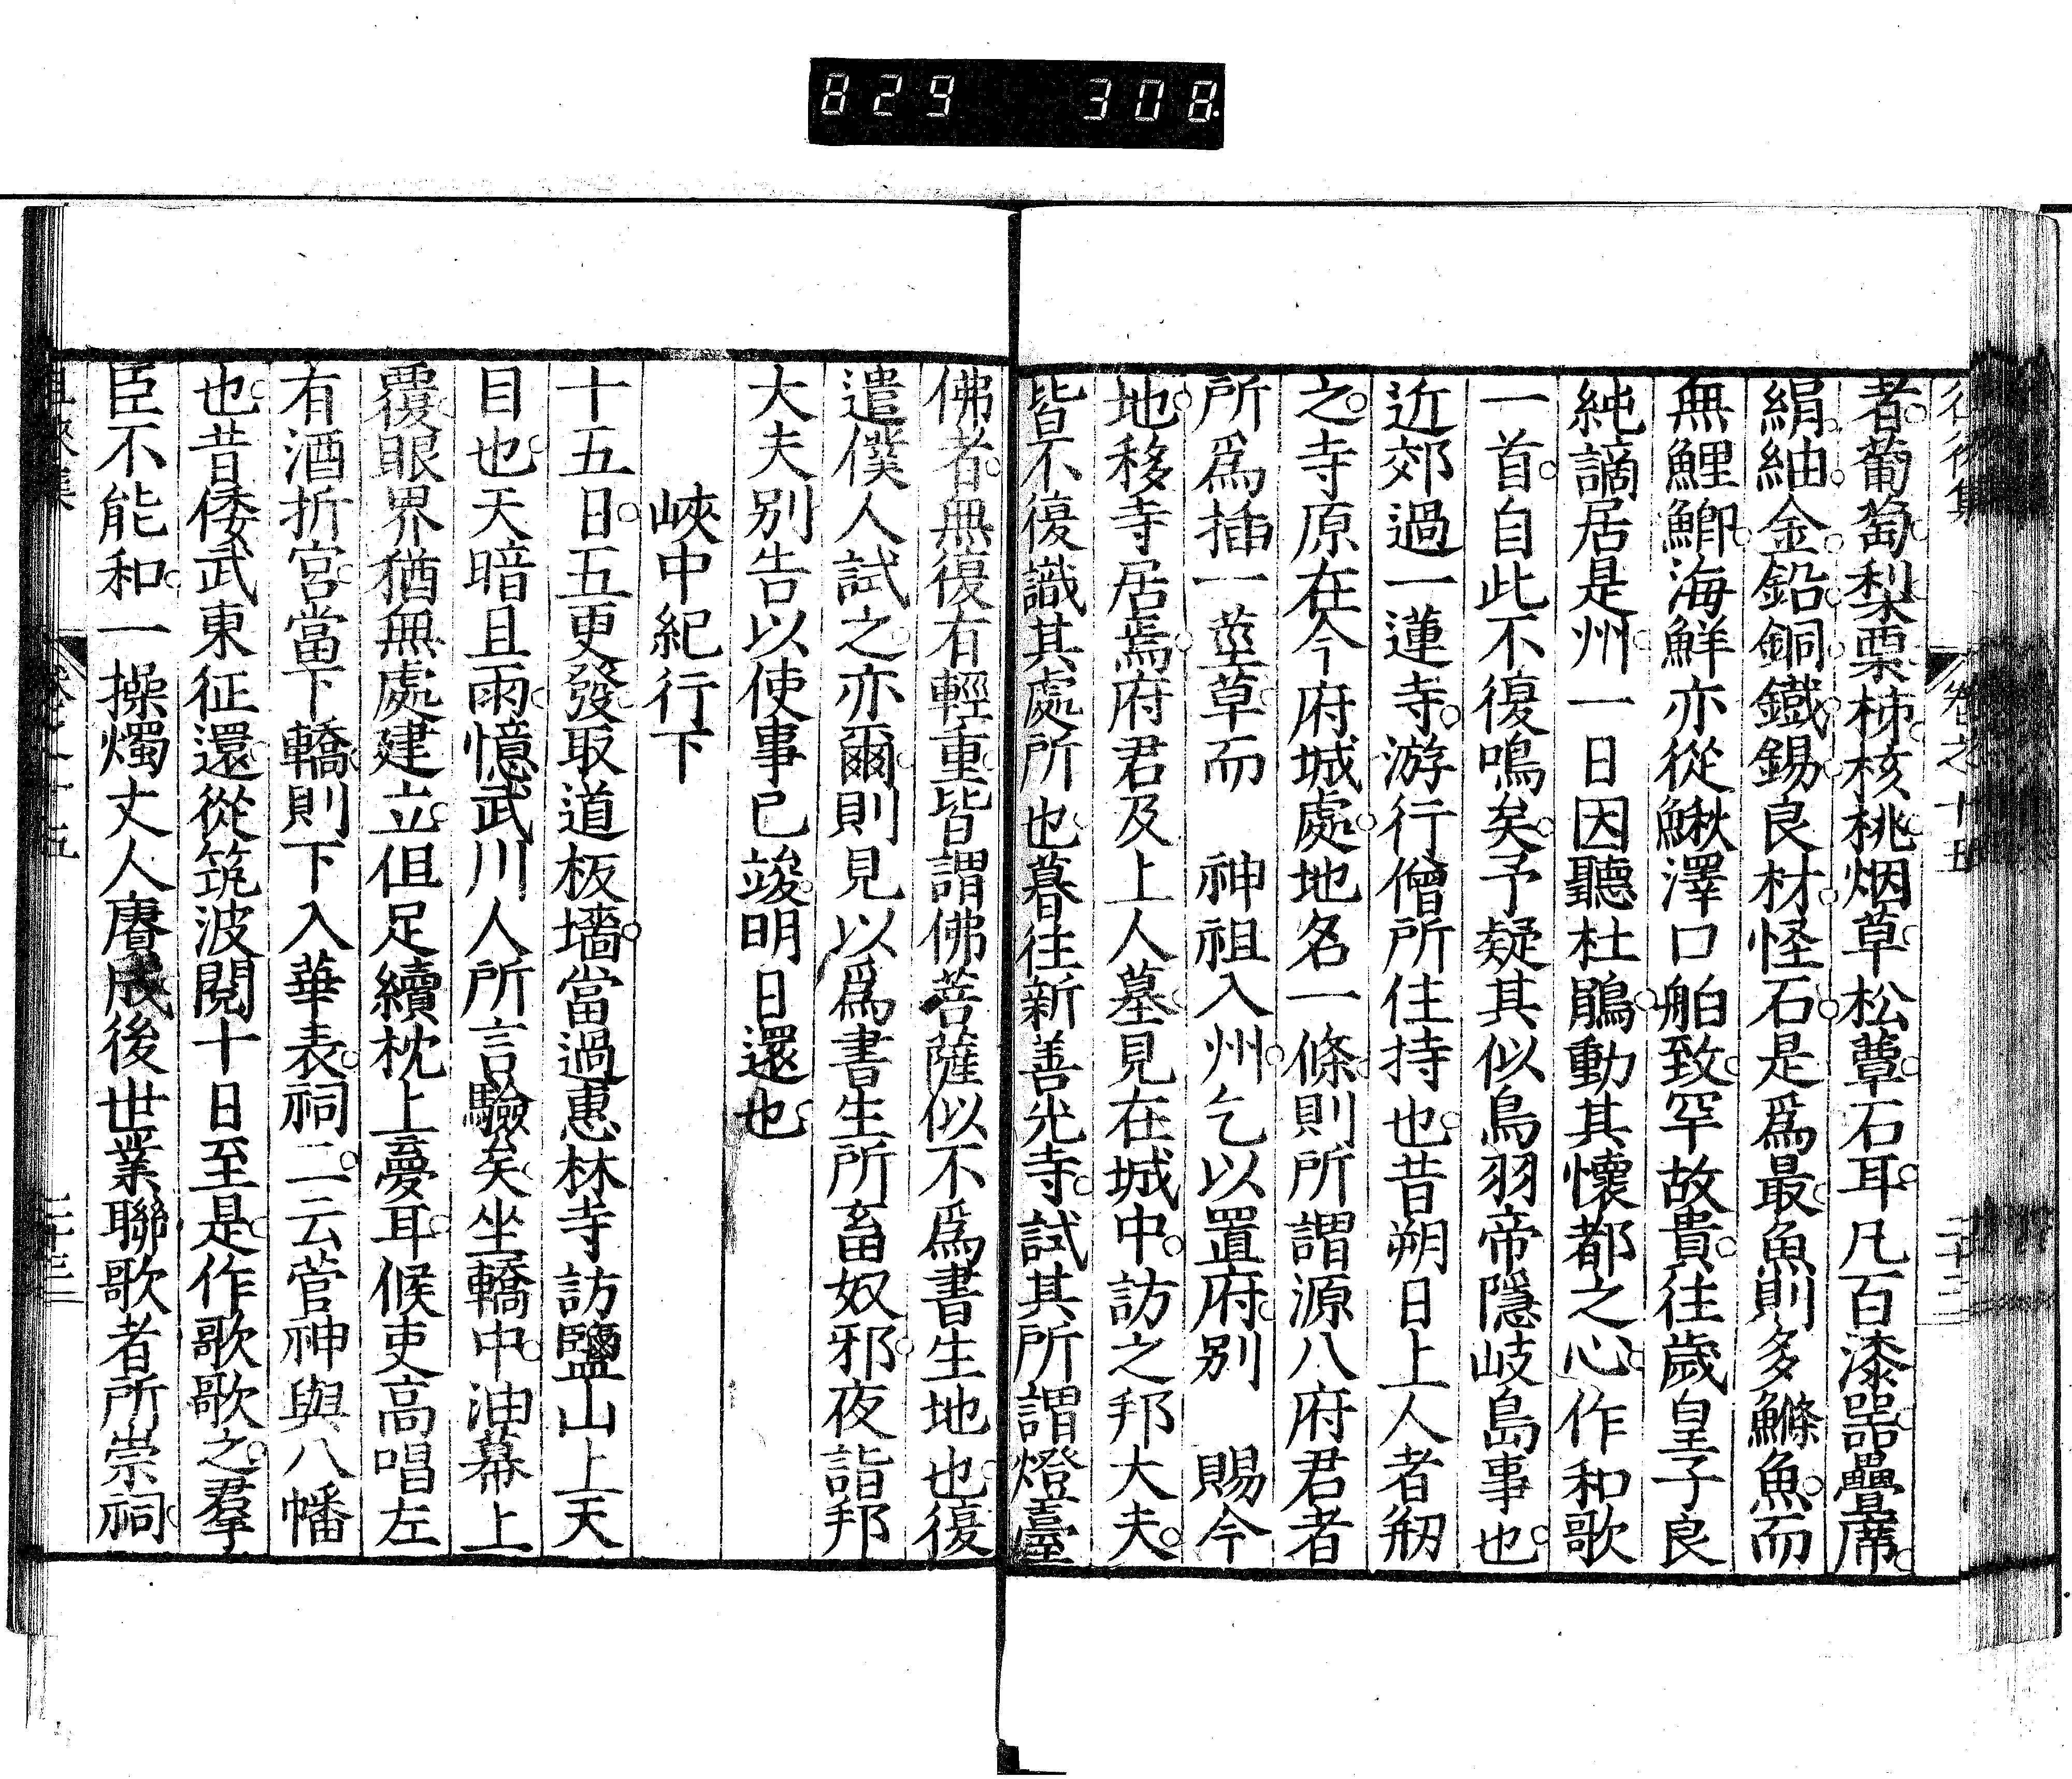 829 308
卷之十五
二十三
者葡萄梨栗柿核桃烟草松蕈石耳凡百漆器疊席
絹紬金鉛銅鐵錫良材怪石是爲最魚則多鰷魚而
無鯉鯽海鮮亦從鰍澤口舶致罕故貴往歲皇子良
純謫居是州一日因聽杜鵑動其懷都之心作和歌
一首自此不復鳴矣予疑其似鳥羽帝隱岐島事也
近郊過一蓮寺游行僧所住持也昔朔日上人者剏
之寺原在今府城處地名一條則所謂源八府君者
所爲插一莖草而　神祖入州乞以置府別　賜今
地移寺居焉府君及上人墓見在城中訪之邦大夫
皆不復識其處所也暮往新善光寺試其所謂燈臺
佛者無復有輕重皆謂佛菩薩似不爲書生地也復
遣僕人試之亦爾則見以爲書生所畜奴邪夜詣邦
大夫別告以使事已竣明日還也
峽中紀行下
十五日五更發取道板墻當過惠林寺訪鹽山上天
目也天暗且雨憶武川人所言驗矣坐轎中油幕上
覆眼界猶無處建立但足續枕上憂耳候吏高唱左
有酒折宮當下轎則下入華表祠二云菅神與八幡
也昔倭武東征還從筑波閱十日至是作歌歌之羣
臣不能和一操燭丈人賡成後世業聯歌者所崇祠